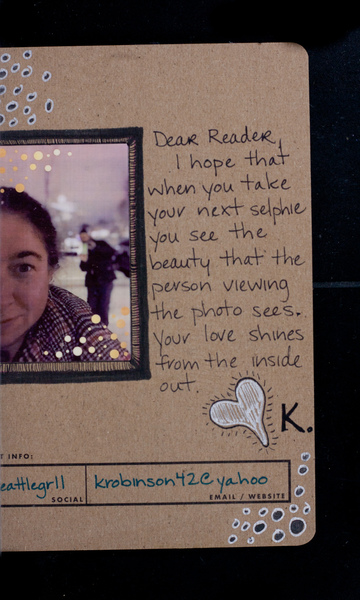 Dear Reader,
I hope that
when you take
your next selphie
you see the
beauty that the
person viewing
the photo sees.
Your love shines
from the inside
out.
K.
T INFO:
eattlegrll
SOCIAL
krobinson42@yahoo
EMAIL / WEBSITE